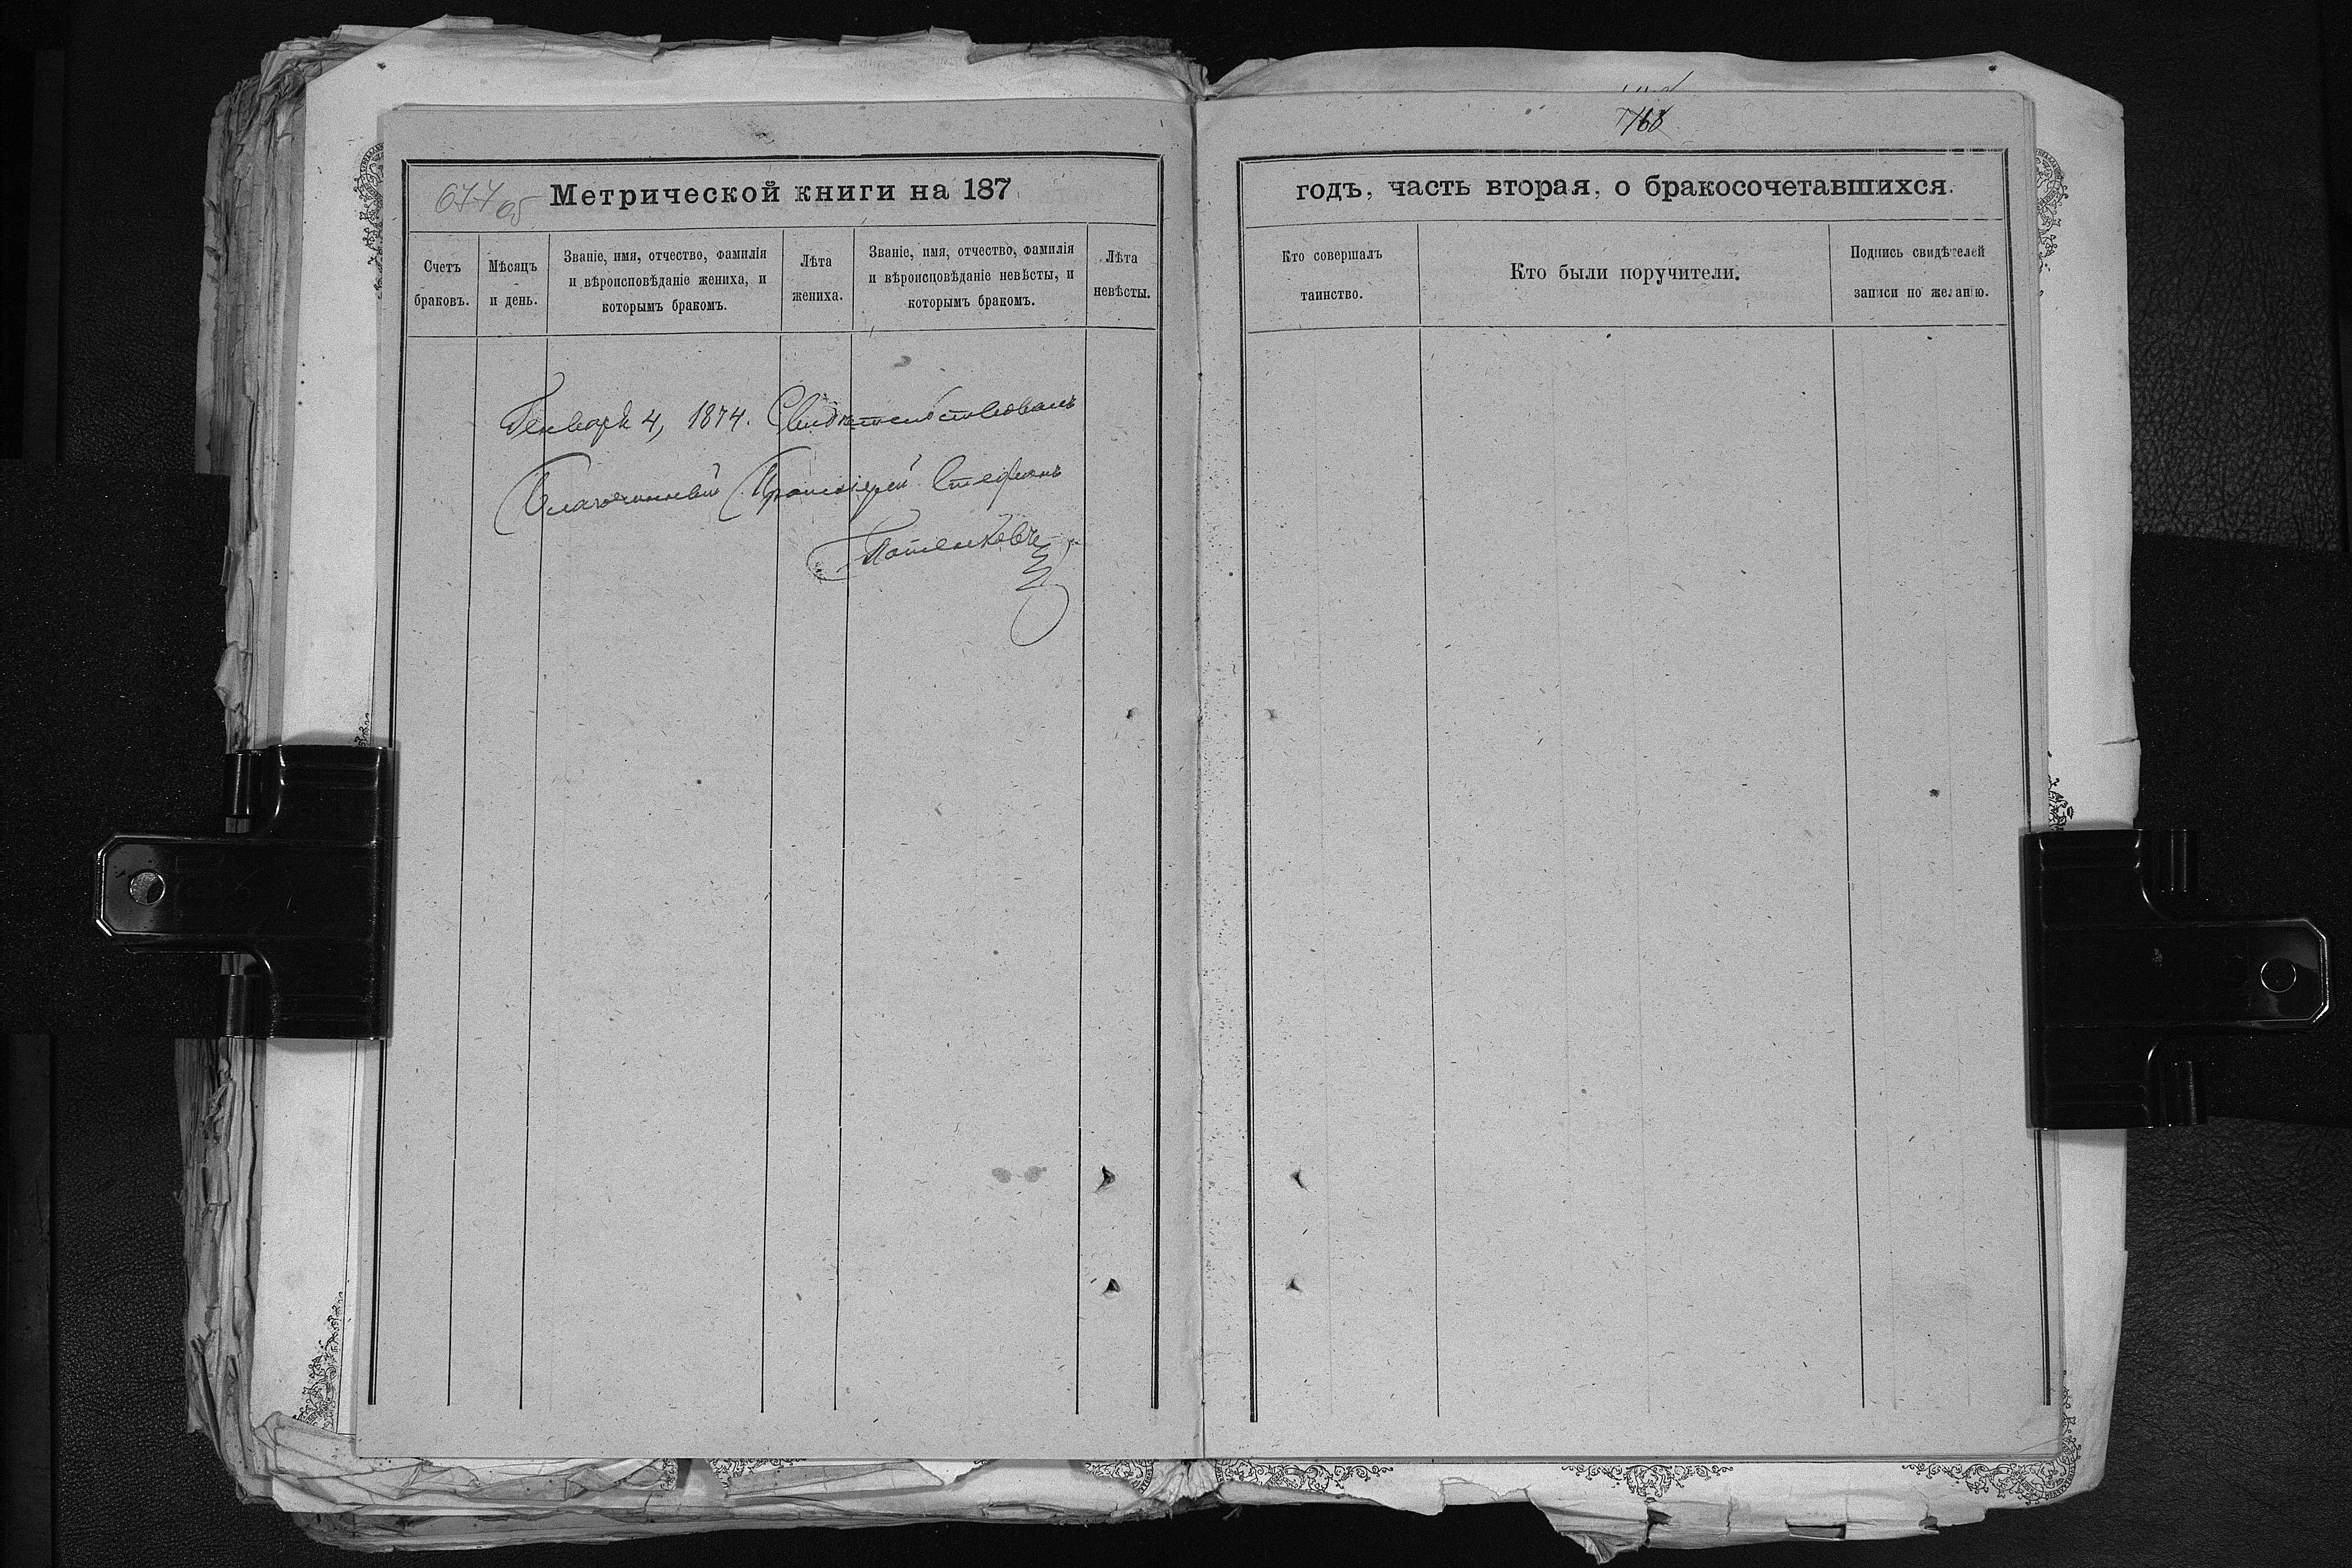 168
677 об
Метрической книги на 187
годъ, часть вторая, о бракосочетавшихся.
Счетъ
браковъ.
Мѣсяцъ
и день.
Званіе, имя, отчество, фамилія
и вѣроисповѣданіе жениха, и
которымъ бракомъ.
Лѣта
жениха.
Званіе, имя, отчество, фамилія
и вѣроисповѣданіе невѣсты, и
которымъ бракомъ.
Лѣта
невѣсты.
Кто совершалъ
таинство.
Кто были поручители.
Подпись свидѣтелей
записи по желанію.
Генваря 4, 1874. Свидѣтельствовалъ
Благочинный Протоіерей Стефанъ